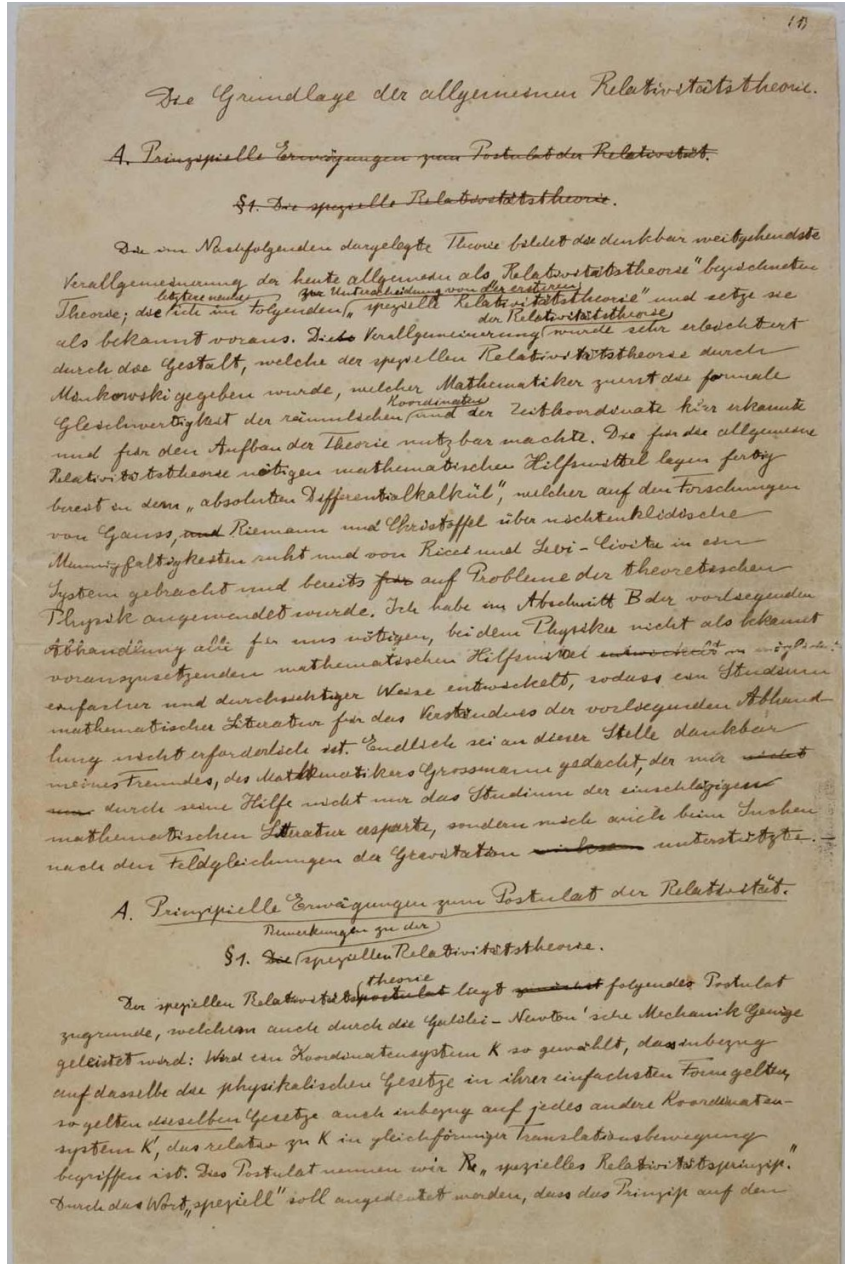 (1)
Die Grundlage der allgemeinen Relativitätstheorie.
A. Prinzipielle Erwägungen zum Postulat der Relativität.
§1. Die spezielle Relativitätstheorie.
Die im Nachfolgenden dargelegte Theorie bildet die denkbar weitgehendste
Verallgemeinerung der heute allgemein als „Relativitätstheorie" bezeichneten
letztere nenne zur Unterscheidung von der ersteren
Theorie; die ich im Folgenden „spezielle Relativitätstheorie" und setze sie
der Relativitätstheorie
als bekannt voraus. Die Verallgemeinerung wurde sehr erleichtert
durch die Gestalt, welche der speziellen Relativitätstheorie durch
Minkowski gegeben wurde, welcher Mathematiker zuerst die formale
Koordinaten
Gleichwertigkeit der räumlichen und der Zeitkoordinate klar erkannte
und für den Aufbau der Theorie nutzbar machte. Die für die allgemeine
Relativitätstheorie nötigen mathematischen Hilfsmittel lagen fertig
bereit in dem „absoluten Differentialkalkül", welcher auf den Forschungen
von Gauss, und Riemann und Christoffel über nichteuklidische
Mannigfaltigkeiten ruht und von Ricci und Levi-Civita in ein
System gebracht und bereits für auf Probleme der theoretischen
Physik angewendet wurde. Ich habe im Abschnitt B der vorliegenden
Abhandlung alle für uns nötigen, bei dem Physiker nicht als bekannt
vorauszusetzenden mathematischen Hilfsmittel entwickelt in möglichst
einfacher und durchsichtiger Weise entwickelt, sodass ein Studium
mathematischer Literatur für das Verständnis der vorliegenden Abhand
lung nicht erforderlich ist. Endlich sei an dieser Stelle dankbar
meines Freundes, des Mathematikers Grossmann gedacht, der mir nicht
nur durch seine Hilfe nicht nur das Studium der einschlägigen
mathematischen Literatur ersparte, sondern mich auch beim Suchen
nach den Feldgleichungen der Gravitation unterstützte.—
A. Prinzipielle Erwägungen zum Postulat der Relativität.
Bemerkungen zu der
§1. Die speziellen Relativitätstheorie.
theorie
Der speziellen Relativitätspostulat liegt zunächst folgendes Postulat
zugrunde, welchem auch durch die Galilei-Newton'sche Mechanik Genüge
geleistet wird: Wird ein Koordinatensystem K so gewählt, dass inbezug
auf dasselbe die physikalischen Gesetze in ihrer einfachsten Form gelten,
so gelten dieselben Gesetze auch inbezug auf jedes andere Koordinaten-
system K', das relativ zu K in gleichförmiger Translationsbewegung
begriffen ist. Dies Postulat nennen wir „spezielles Relativitätsprinzip."
Durch das Wort „speziell" soll angedeutet werden, dass das Prinzip auf den